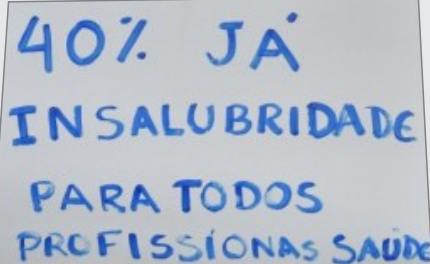 40% JÁ
INSALUBRIDADE
PARA TODOS
PROFISSÍONAS SAÚDE